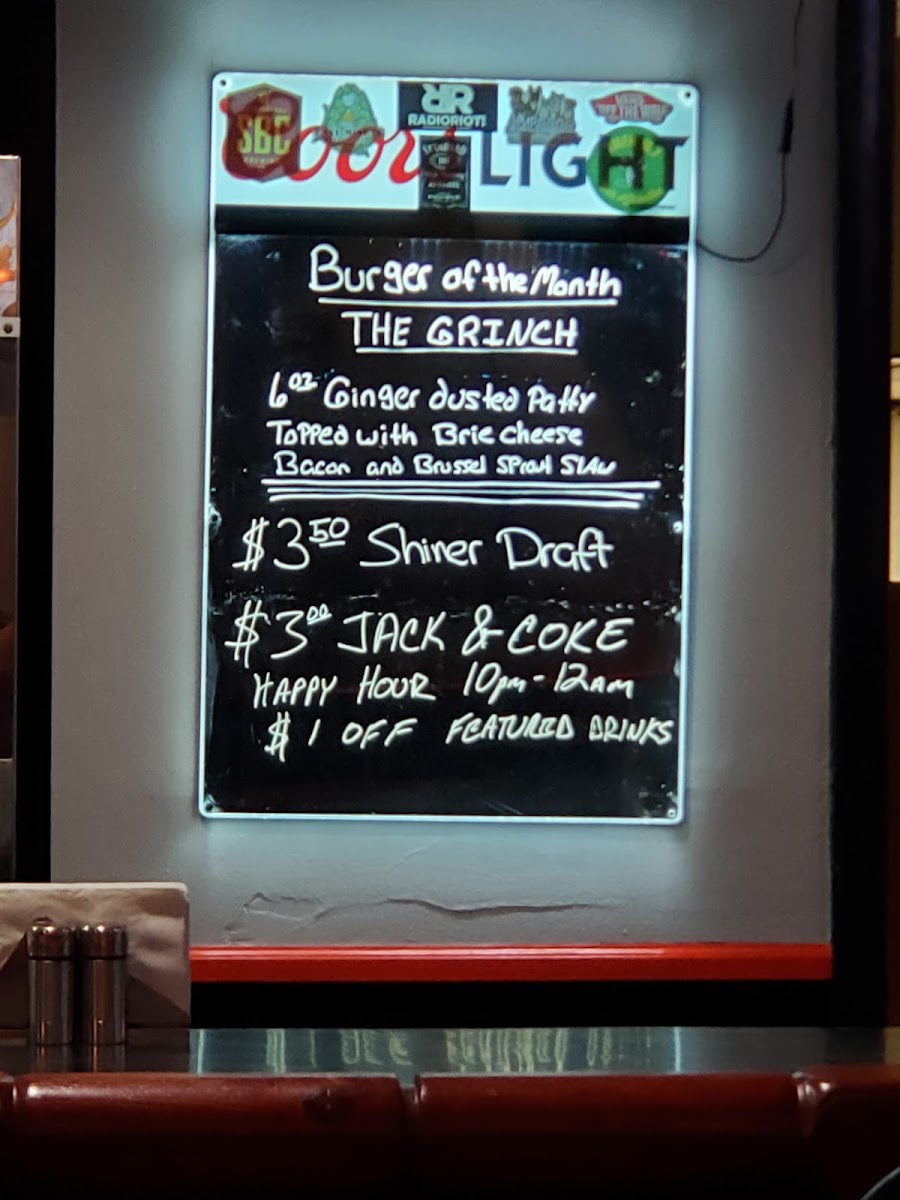 SBC
RR
RADIORIOT!
VANS
"OFF THE WALL"
Coors LIGHT
Burger of the Month
THE GRINCH
6oz Ginger dusted Patty
Topped with Brie cheese
Bacon and Brussel Sprout Slaw
$3 50 Shiner Draft
$3 00 JACK & COKE
HAPPY HOUR 10pm - 12AM
$1 OFF FEATURED DRINKS